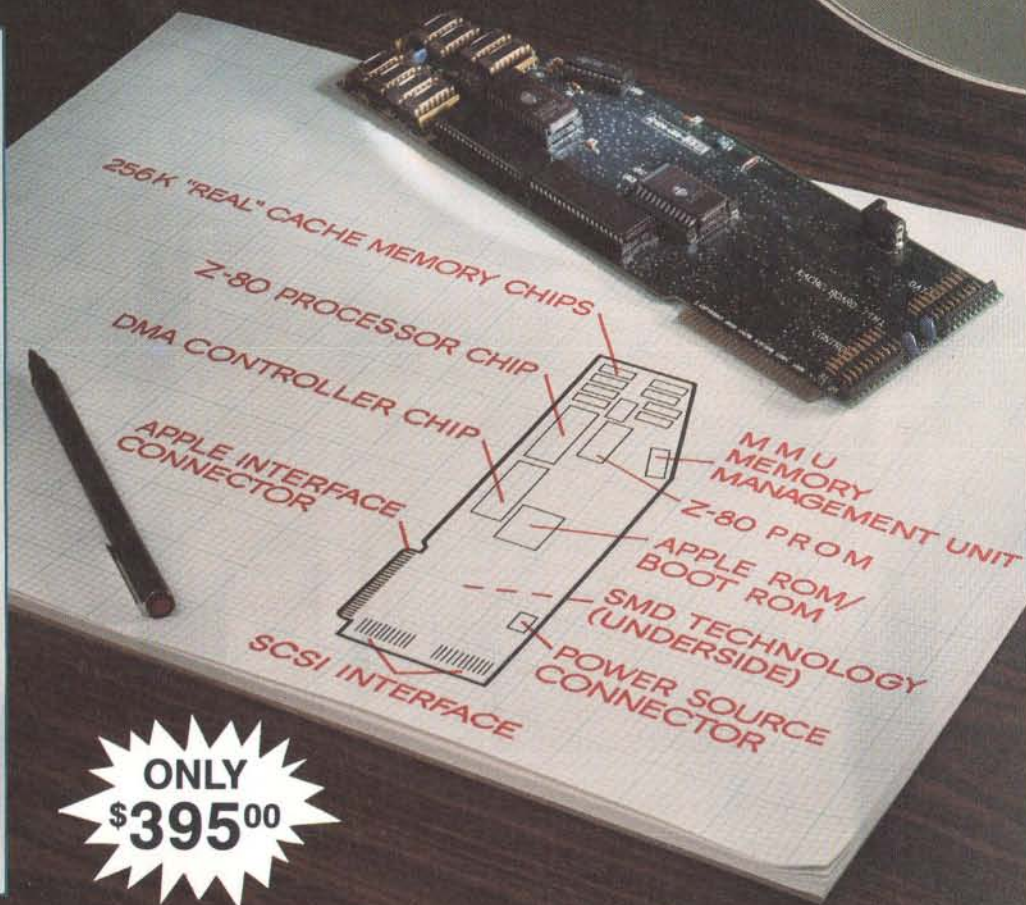 256K "REAL" CACHE MEMORY CHIPS
Z-80 PROCESSOR CHIP
DMA CONTROLLER CHIP
APPLE INTERFACE
CONNECTOR
SCSI INTERFACE
M M U
MEMORY
MANAGEMENT UNIT
Z-80 P R O M
APPLE ROM/
BOOT ROM
SMD TECHNOLOGY
(UNDERSIDE)
POWER SOURCE
CONNECTOR
ONLY
$39500